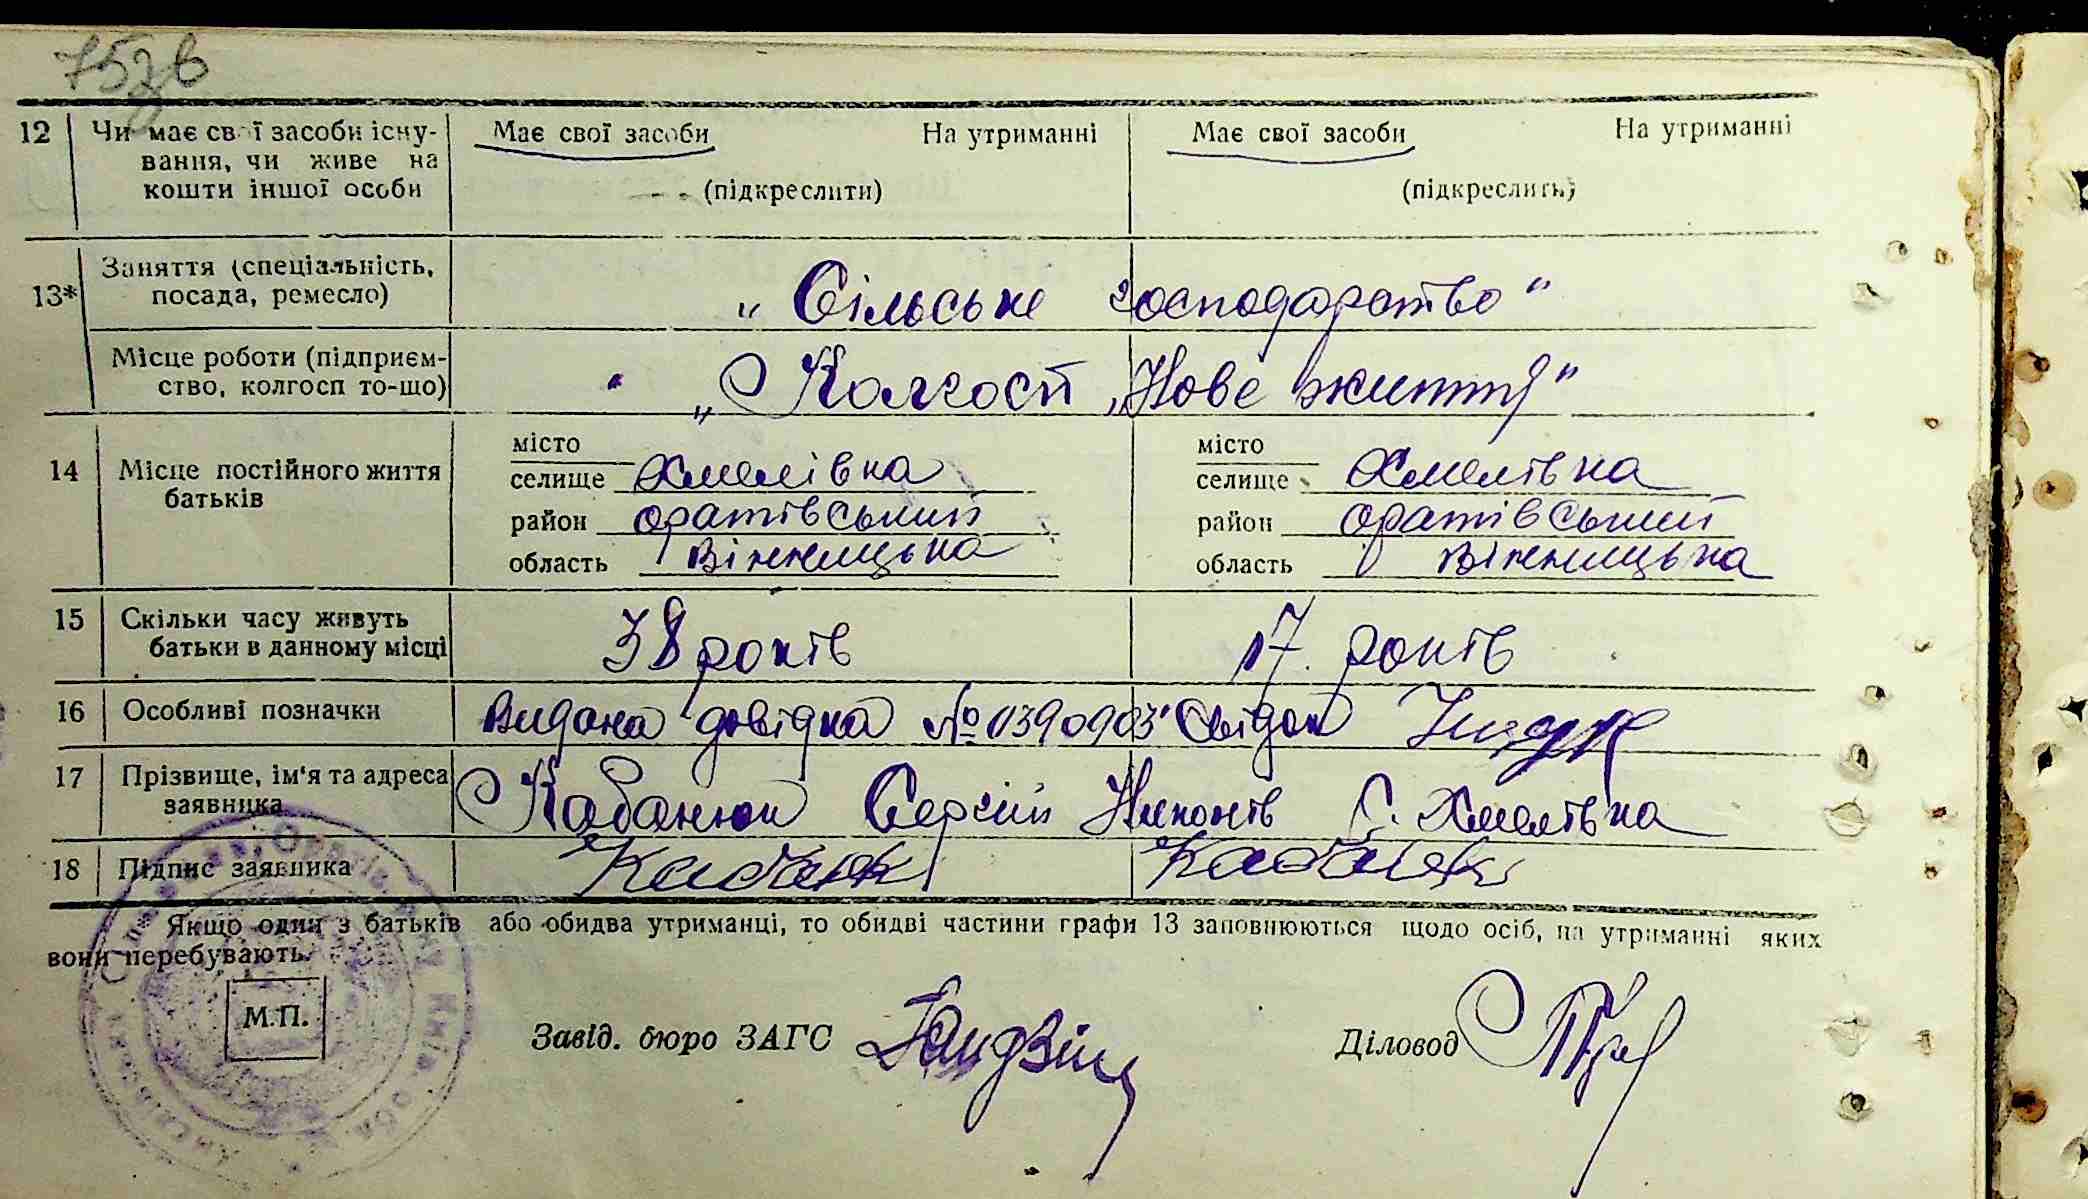 75зв
12 Чи має свої засоби існу- Має свої засоби На утриманні Має свої засоби На утриманні
вання, чи живе на
кошти іншої особи (підкреслити) (підкреслить)
Заняття (спеціальність,
13* посада, ремесло) „Сільське господарство“
Місце роботи (підприєм-
ство, колгосп то-що) „Колгосп „Нове життя“
місто місто
14 Місце постійного життя селище Хмелівка селище Хмелівка
батьків район оратівський район оратівський
область Вінницька область Вінницька
15 Скільки часу живуть
батьки в данному місці 38 років 17 років
16 Особливі позначки Видана довідка № 0390903 Свідок
17 Прізвище, ім'я та адреса
заявника Кабанюк Сергій Никонів С. Хмелівка
18 Підпис заявника
Якщо один з батьків або обидва утриманці, то обидві частини графи 13 заповнюються щодо осіб, на утриманні яких
вони перебувають.
М.П.
Завід. бюро ЗАГС Діловод